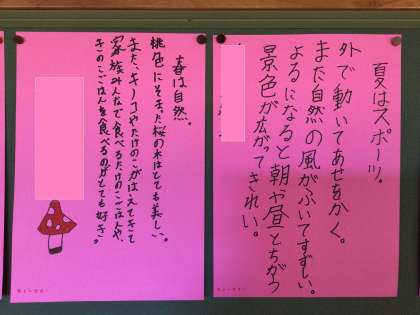 春は自然。
桃色にそまった桜の木はとても美しい。
また、キノコやたけのこがはえてきて
家族みんなで食べるたけのこごはんや、
きのこごはんを食べるのがとても好き。
夏はスポーツ。
外で動いてあせをかく。
また自然の風がふいてすずしい。
よるになると朝や昼とちがう
景色が広がってきれい。